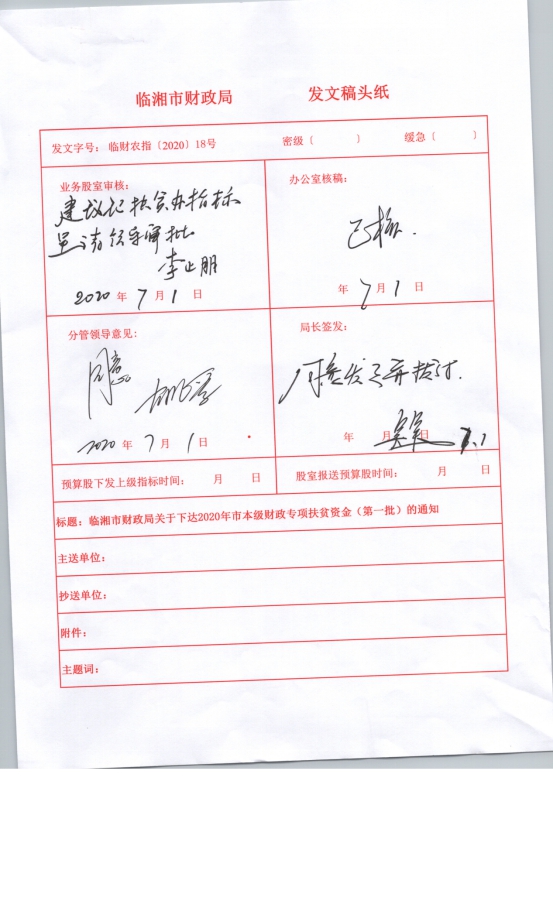 临湘市财政局 发文稿头纸
发文字号：临财农指〔2020〕18号 密级〔 〕 缓急〔 〕
业务股室审核：
建议记扶贫办指标
呈请领导审批
李止朋
2020 年 7 月 1 日
办公室核稿：
年 7 月 1 日
分管领导意见：
同意
2020 年 7 月 1 日
局长签发：
年 月 日 7.1
预算股下发上级指标时间： 月 日
股室报送预算股时间： 月 日
标题：临湘市财政局关于下达2020年市本级财政专项扶贫资金（第一批）的通知
主送单位：
抄送单位：
附件：
主题词：